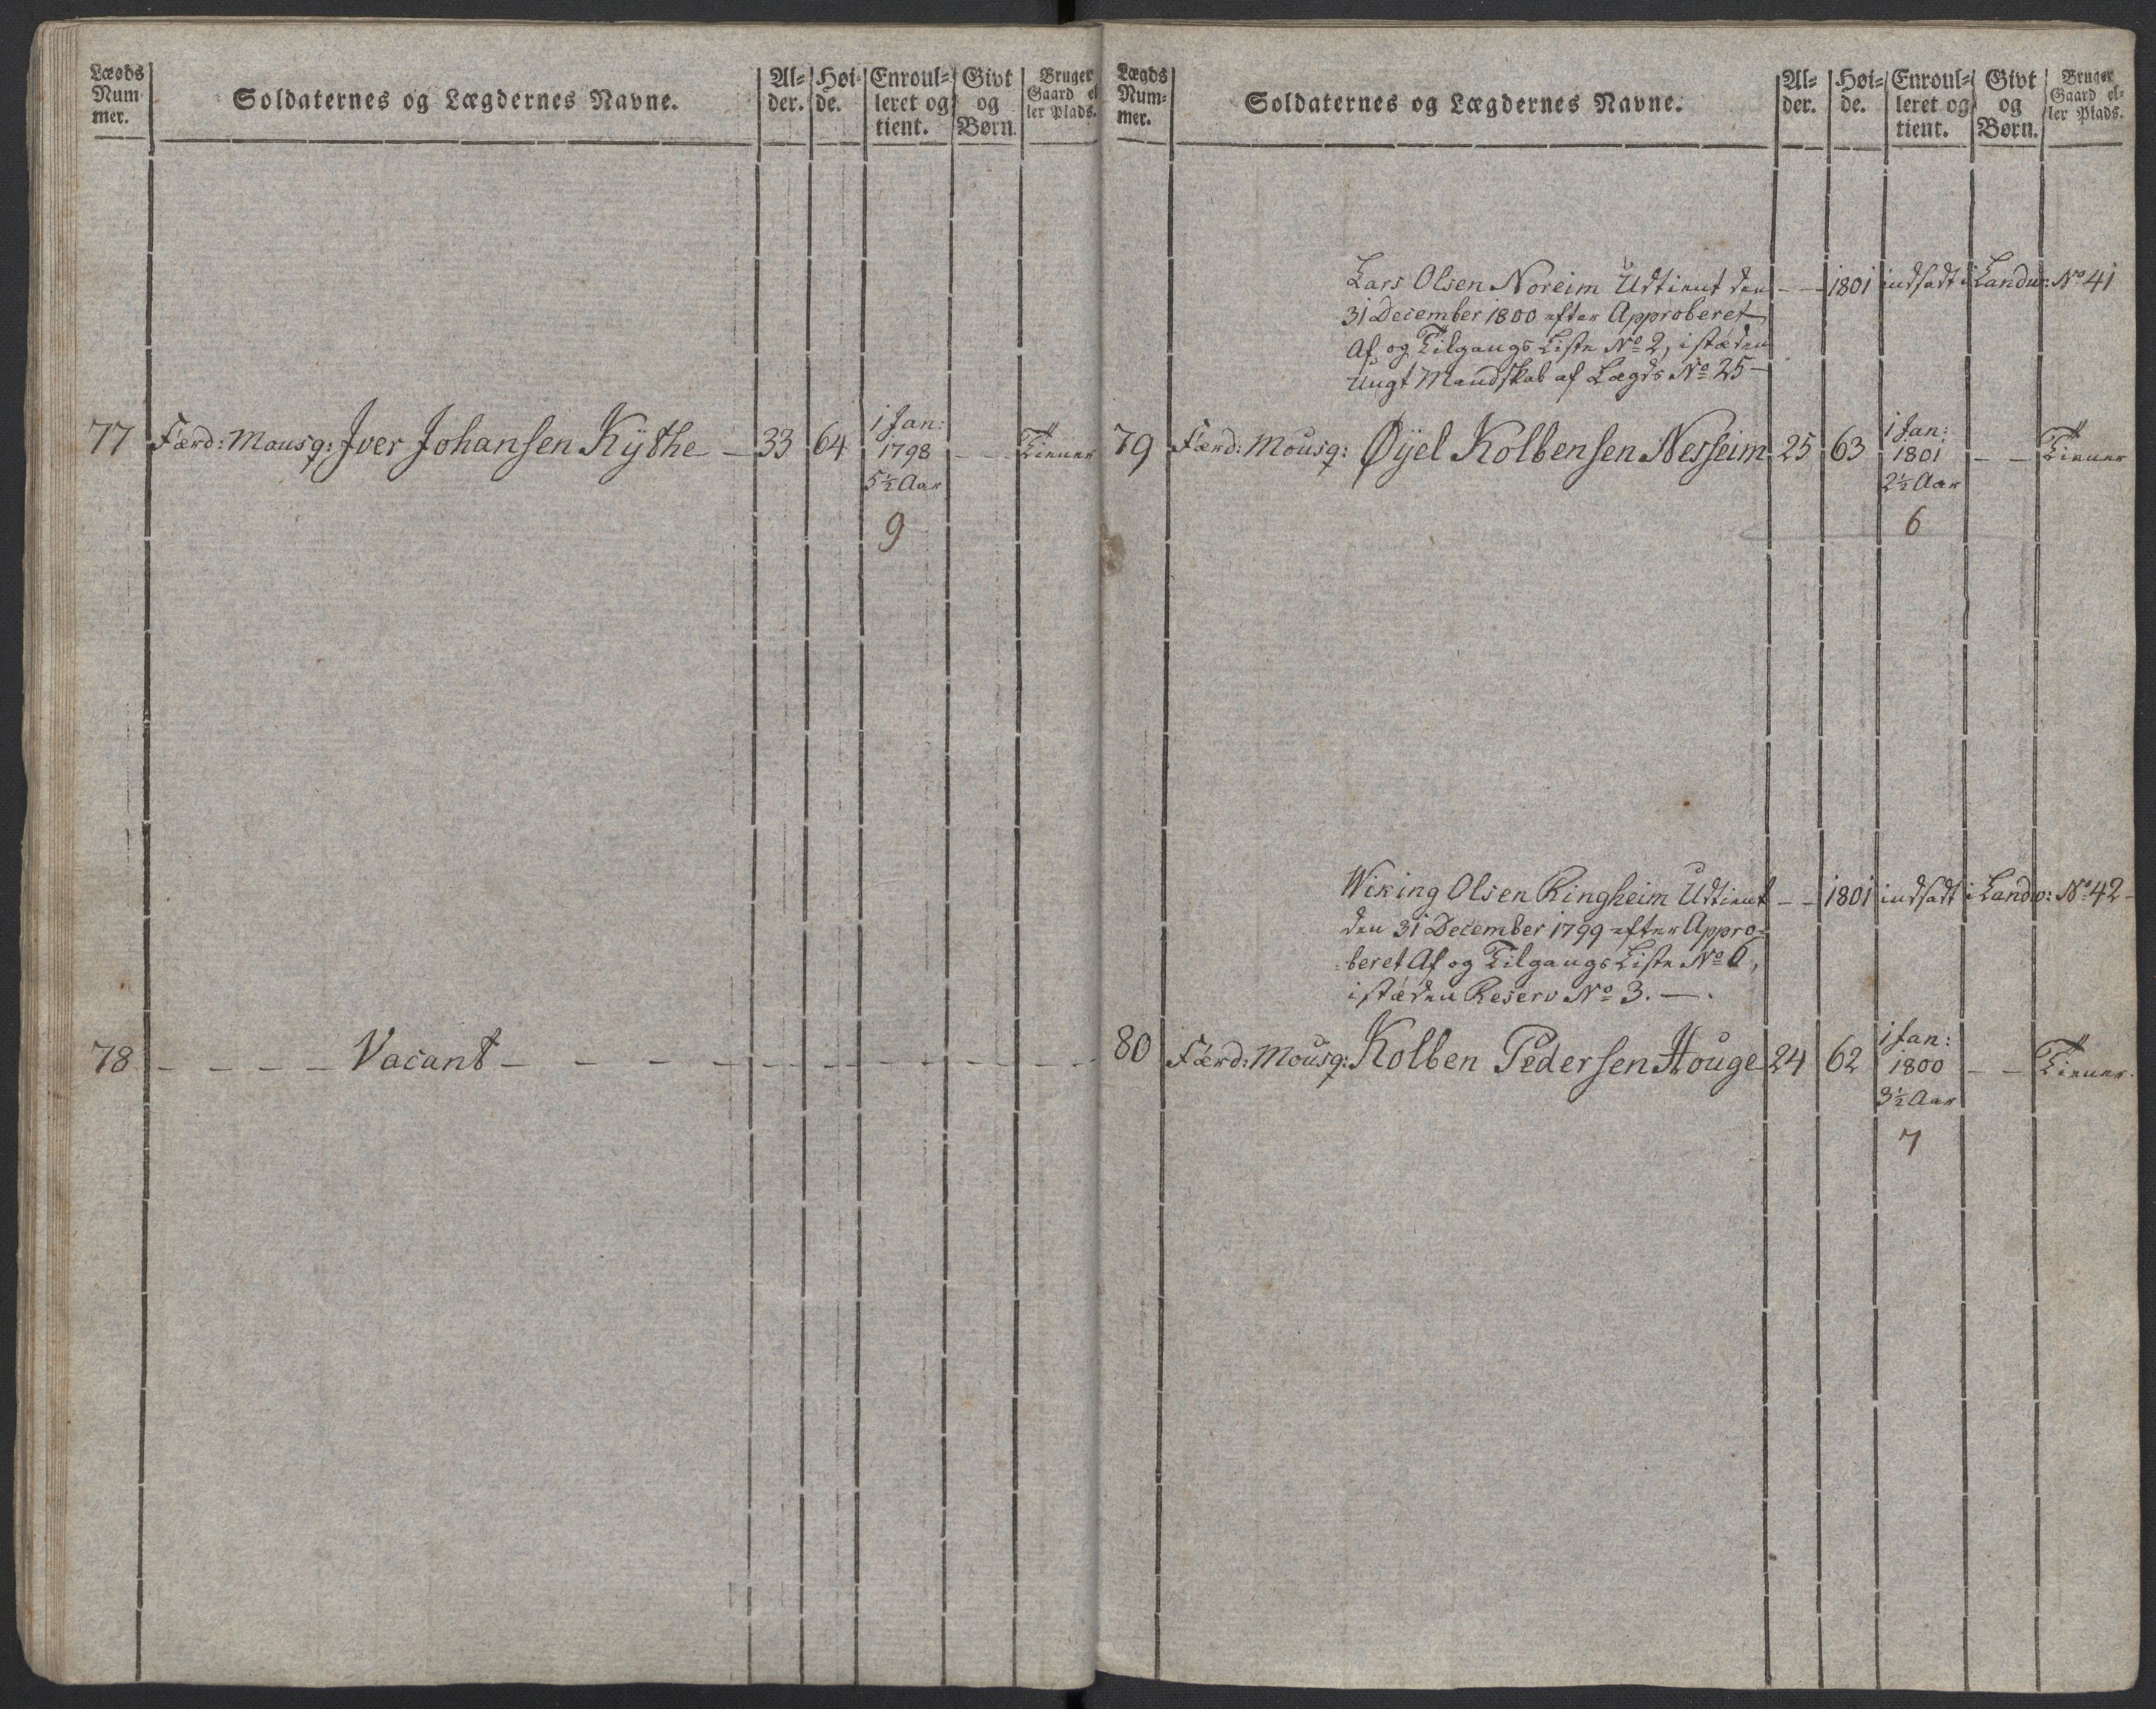 Lægds Nummer. | Soldaternes og Lægdernes Navne. | Alder. | Høide. | Enroulleret og tient. | Givt og Børn. | Bruger Gaard eller Plads.
77 Færd: Mousq: Iver Johansen Kÿthe — 33 64 1 Jan: 1798 5½ Aar — — Tiener
9
78 — — — — Vacant — — — — — — — — — —
Lægds Nummer. | Soldaternes og Lægdernes Navne. | Alder. | Høide. | Enroulleret og tient. | Givt og Børn. | Bruger Gaard eller Plads.
Lars Olsen Noreim Udtient den — — 1801 indsadt i Landw: No 41
31 December 1800 efter Approberet
Af og Tilgangs Liste No 2, istæden
Ungt Mandskab af Lægds No 25 —
79 Færd: Mousq: Øÿel Kolbensen Nesseim 25 63 1 Jan: 1801 2½ Aar — — Tiener
6
Wiking Olsen Ringheim Udtient — — 1801 indsadt i Landw: No 42 —
den 31 December 1799 efter Appro-
beret Af og Tilgangs Liste No 6,
istæden Reserv No 3. —.
80 Færd: Mousq: Kolben Pedersen Houge 24 62 1 Jan: 1800 3½ Aar — — Tiener.
7